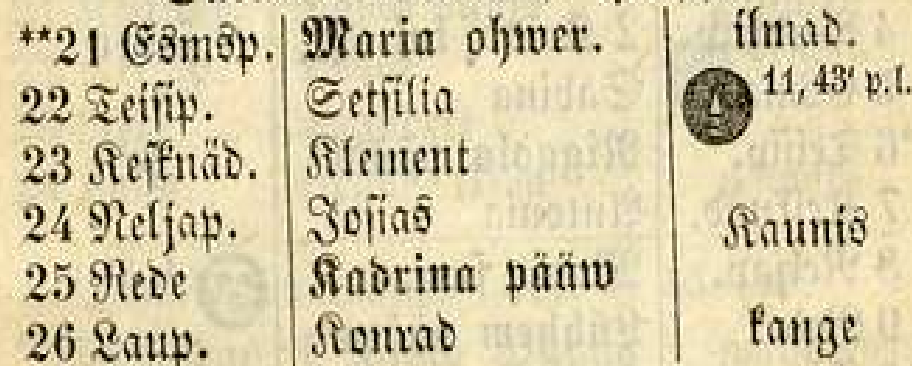 **21 Esmsp. Maria ohwer. ilmad.
22 Teisip. Setsilia 11,43' p.l.
23 Kesknäd. Klement
24 Neljap. Josias Kaunis
25 Rede Kadrina pääw
26 Laup. Konrad kange